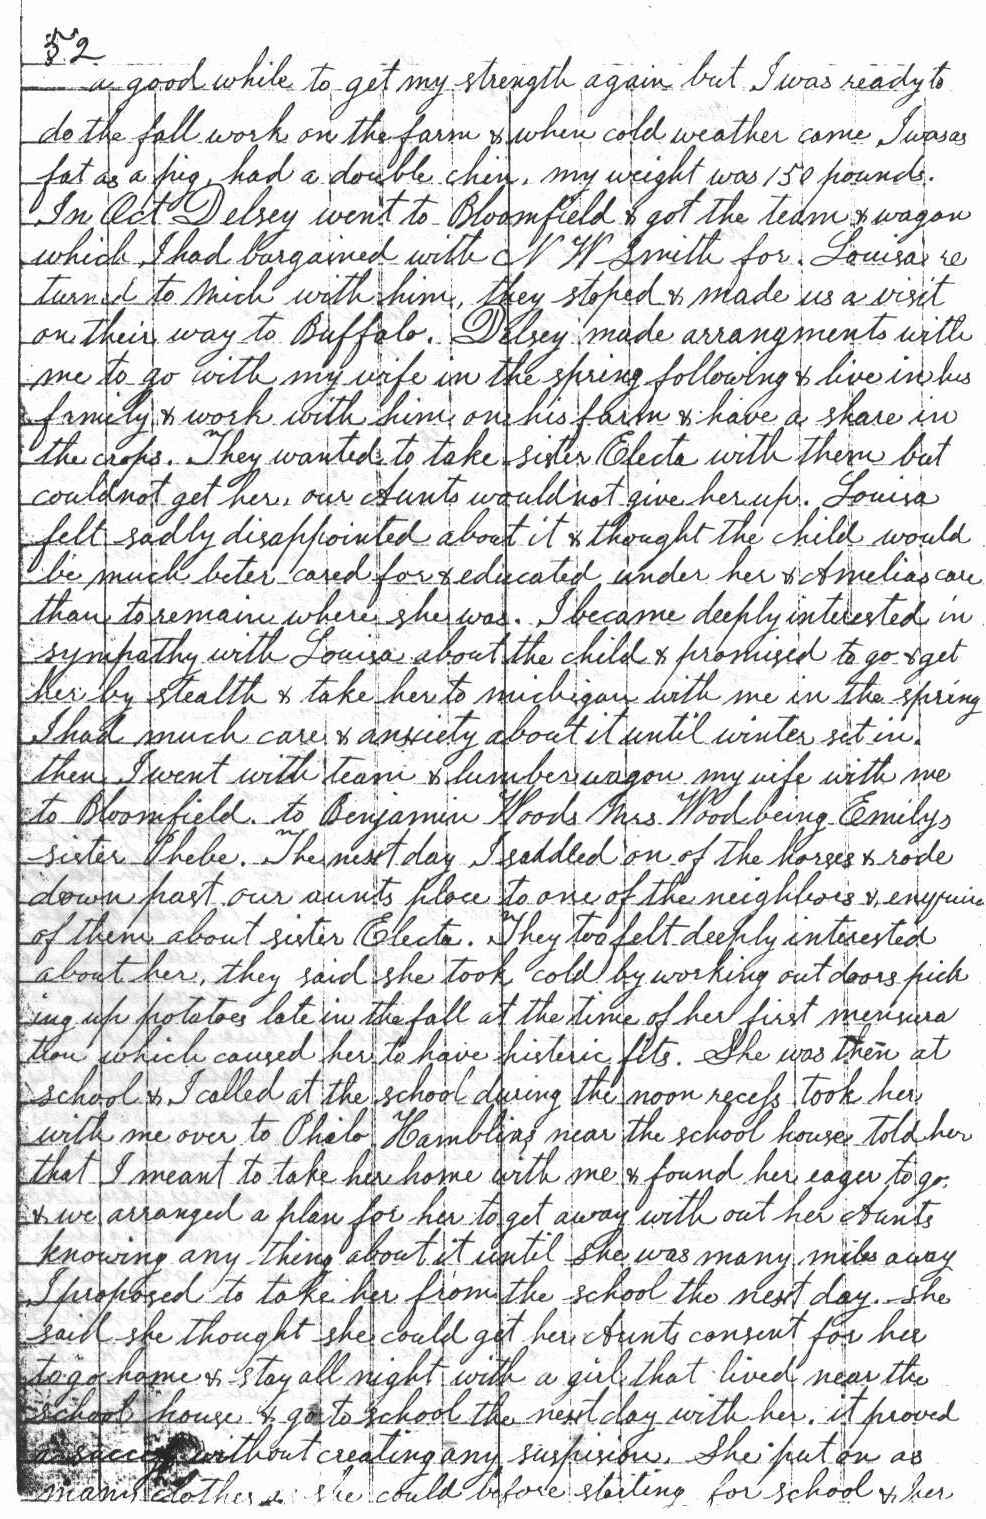 52
a good while to get my strength again but I was ready to
do the fall work on the farm & when cold weather came I was as
fat as a pig, had a double chin, my weight was 150 pounds.
In Oct Delsey went to Bloomfield & got the team & wagon
which I had bargained with N W Smith for. Louisa re
turned to Mich with him, they stoped & made us a visit
on their way to Buffalo. Delsey made arrangments with
me to go with my wife in the spring following & live in his
family & work with him on his farm & have a share in
the crops. They wanted to take sister Electa with them but
could not get her, our Aunts would not give her up. Louisa
felt sadly disappointed about it & thought the child would
be much beter cared for & educated under her & Amelias care
than to remain where she was. I became deeply interested in
sympathy with Louisa about the child & promised to go & get
her by stealth & take her to michigan with me in the spring
I had much care & anxiety about it until winter set in.
then I went with team & lumber wagon my wife with me
to Bloomfield. to Benjamin Woods Mrs Wood being Emilys
sister Phebe. The next day I saddled on of the horses & rode
down past our aunts place to one of the neighbors & enquire
of them about sister Electa. They too felt deeply interested
about her, they said she took cold by working out doors pick
ing up potatoes late in the fall at the time of her first mensura
tion which caused her to have histeric fits. She was then at
school & I called at the school during the noon recess took her
with me over to Philo Hamblins near the school house told her
that I meant to take her home with me & found her eager to go.
& we arranged a plan for her to get away with out her Aunts
knowing any thing about it until she was many miles away
I proposed to take her from the school the next day. she
said she thought she could get her Aunts consent for her
to go home & stay all night with a girl that lived near the
school house & go to school the next day with her. it proved
a success without creating any suspision. She put on as
many clothes as she could before starting for school & her